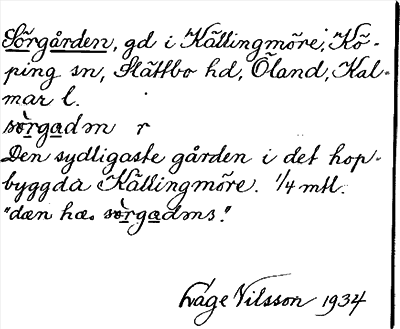 Sörgården, gd i Källingmöre, Kö-
ping sn, Slättbo hd, Öland, Kal-
mar l.
sòrgadm r
Den sydligaste gården i det hop-
byggda Källingmöre. 1/4 mtl.
"dæn hæ. sòrgadms."
Åage Nilsson 1934